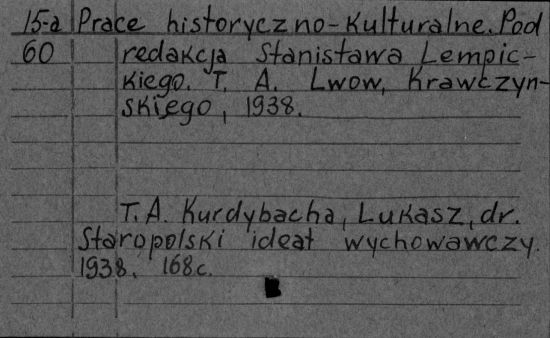 15-a Prace historyczno-kulturalne. Pod
60 redakcja Stanisława Lempic-
kiego. T. A. Lwow, Krawczyn-
skiego, 1938.
T. A. Kurdybacha, Lukasz, dr.
Staropolski ideał wychowawczy.
1938. 168c.